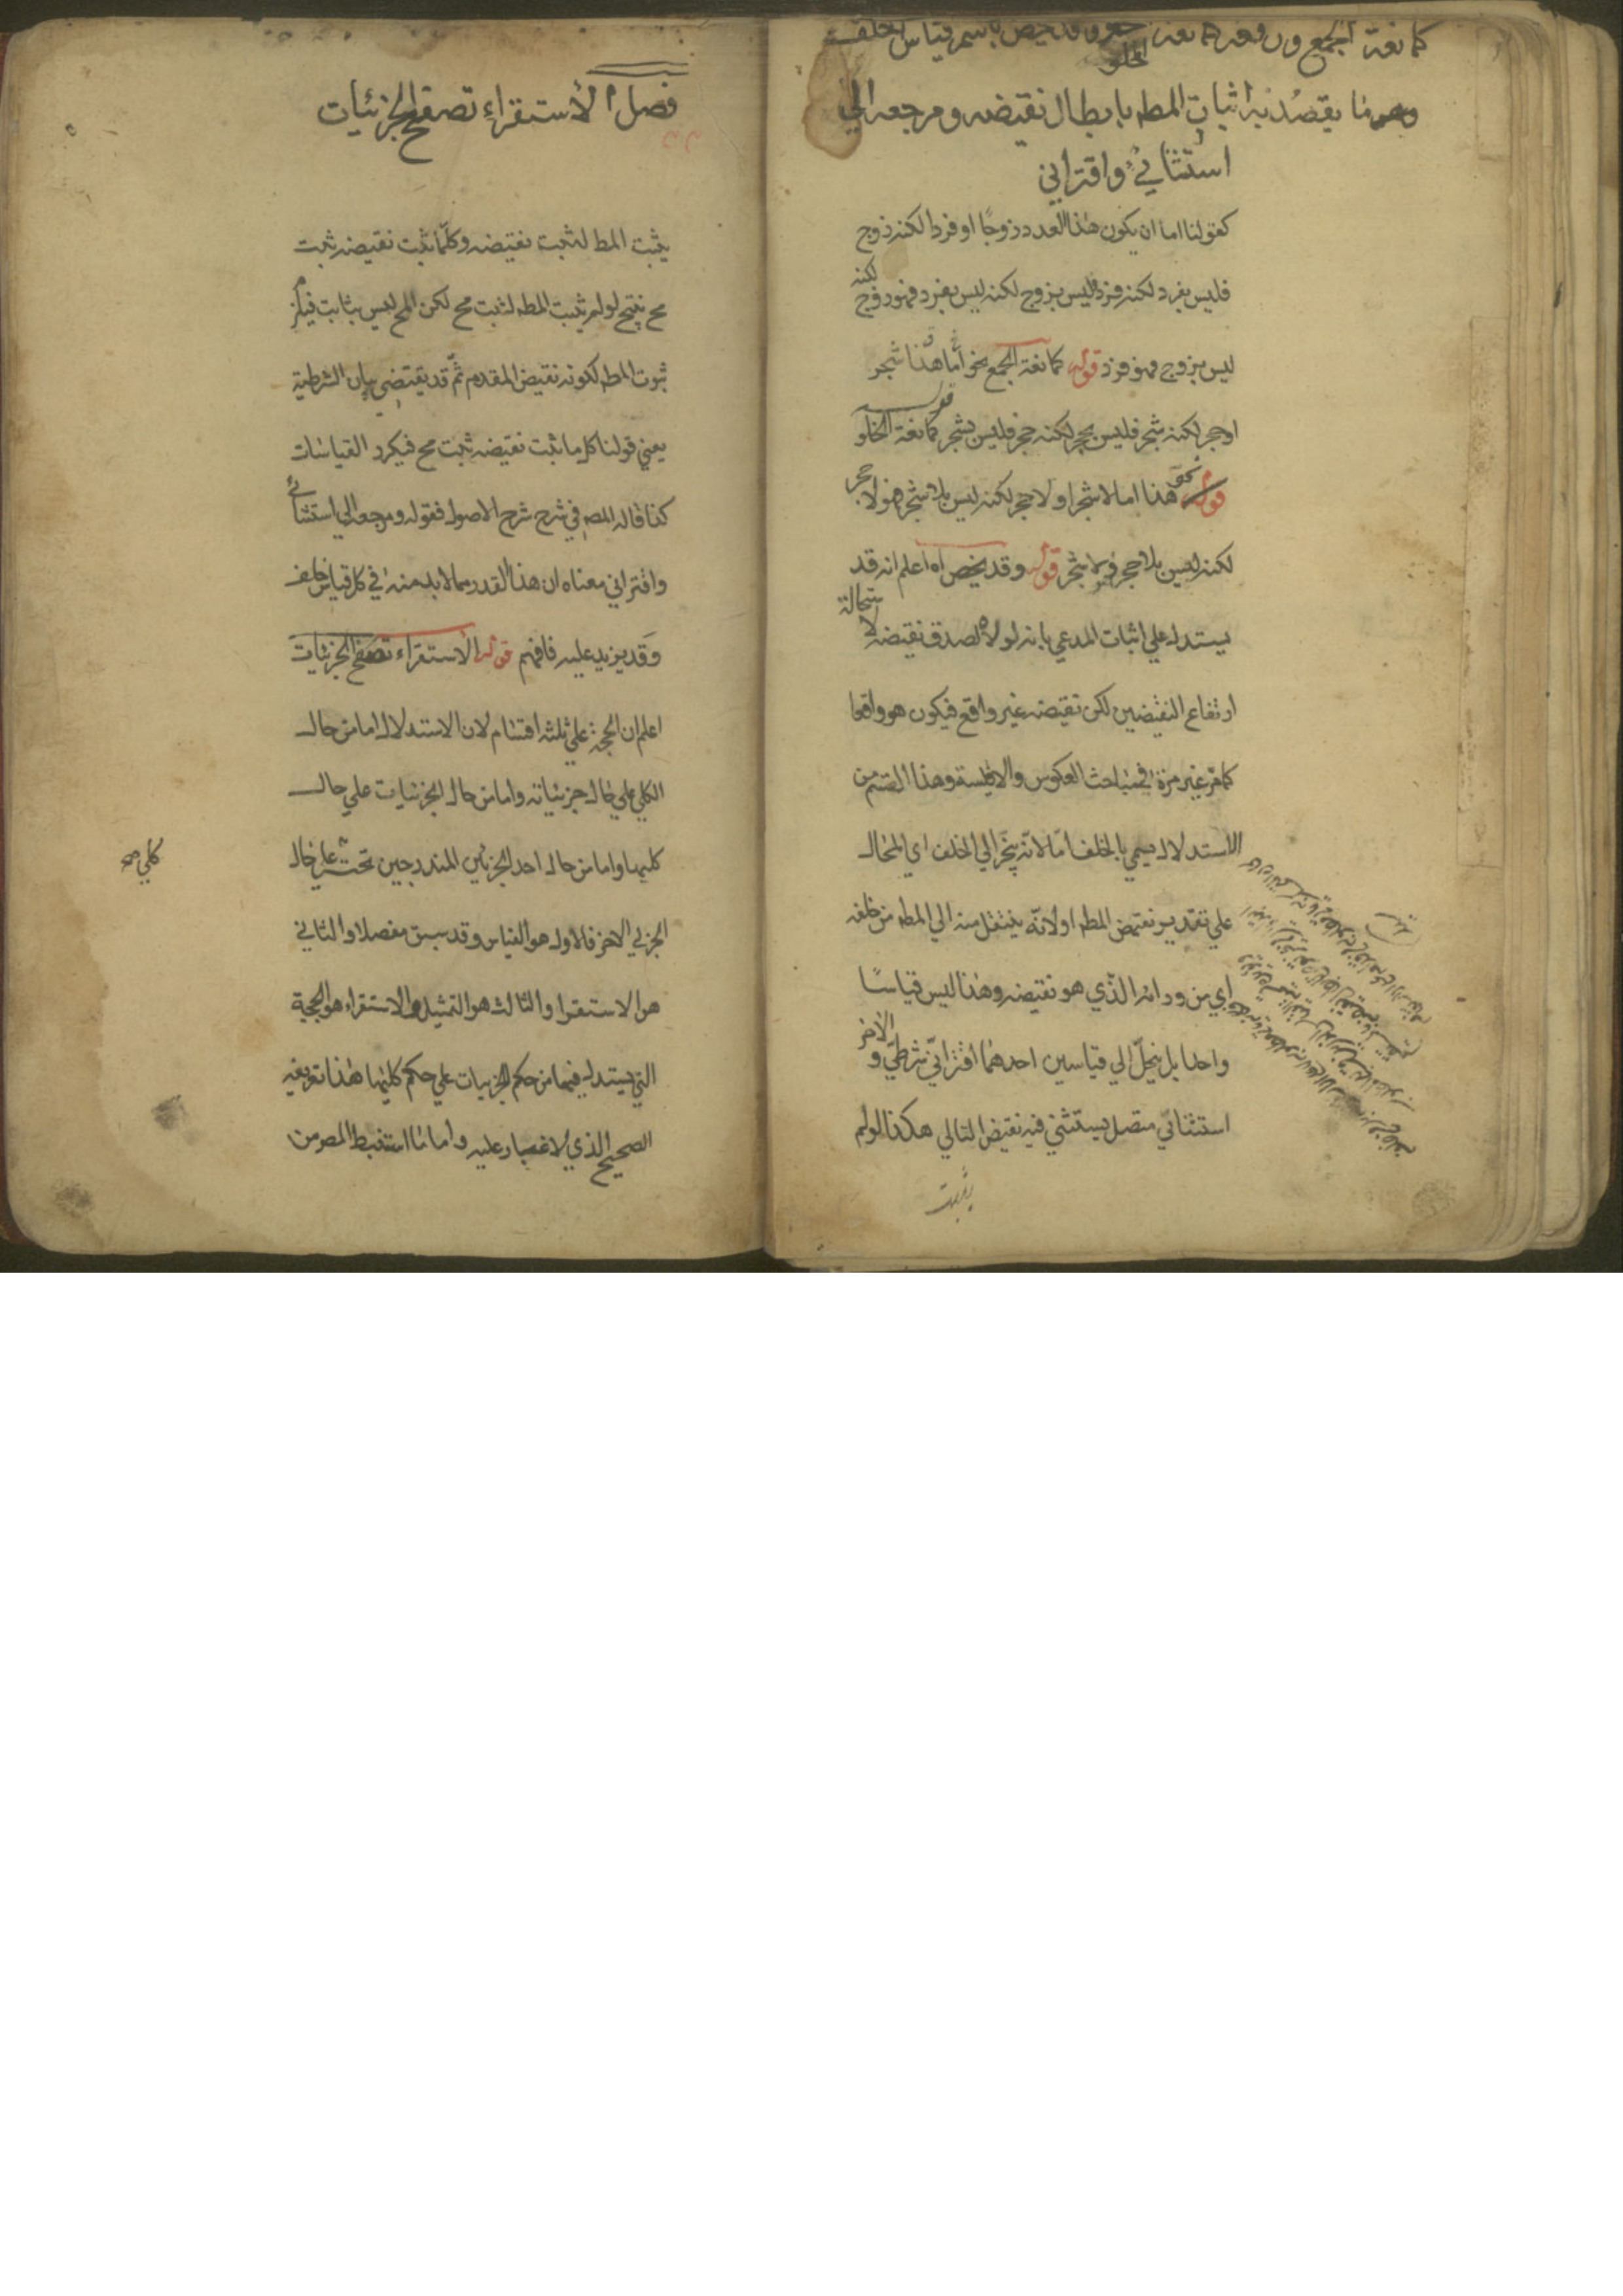 كمانعة الجمع ورفعه كمانعة الخلو وقد يخص باسم قياس الخلف
وهو ما يقصد به اثبات المطـ بابطال نقيضه ومرجعه الي
استثنائي واقتراني
كقولنا اما ان يكون هذا العدد زوجًا او فردا لكنه زوج
فليس بفرد لكنه فرد فليس بزوج لكنه ليس بفرد فهو زوج لكنه
ليس بزوج فهو فرد قوله كمانعة الجمع نحو اما هذا شجر
او حجر لكنه شجر فليس بحجر لكنه حجر فليس بشجر قوله كمانعة الخلو
قوله نحو هذا اما لا شجر او لا حجر لكنه ليس بلا شجر فهو لا حجر
لكنه ليس بلا حجر فهو لا شجر قوله وقد يخص اه اعلم انه قد
يستدل علي اثبات المدعي بانه لولاه لصدق نقيضه لاستحالة
ارتفاع النقيضين لكن نقيضه غير واقع فيكون هو واقعا
كما مر غير مرة في مباحث العكوس والاقيسة وهذا القسم من
الاستدلال يسمي بالخلف اما لانه ينجر الي الخلف اي المحال
علي تقدير نقيض المطـ او لانه ينتقل منه الي المطـ من خلفه
اي من ورائه الذي هو نقيضه وهذا ليس قياسًا
واحدا بل ينحل الي قياسين احدهما اقتراني شرطي والاخر
استثنائي متصل يستثني فيه نقيض التالي هكذا لو لم
يثبت
فصل الاستقراء تصفح الجزئيات
يثبت المطـ لثبت نقيضه وكلما ثبت نقيضه ثبت
مح ينتج لو لم يثبت المطـ لثبت مح لكن المح ليس بثابت فيلزم
ثبوت المطـ لكونه نقيض المقدم ثم قد يقتضي بيان الشرطية
يعني قولنا كل ما ثبت نقيضه ثبت مح فيكرر القياسات
كذا قاله المصـ في شرح شرح الاصول فقوله ومرجعه الي استثنائي
واقتراني معناه ان هذا القدر مما لا بد منه في كل قياس خلف
وقد يزيد عليه فافهم قوله الاستقراء تصفح الجزئيات
اعلم ان الحجة علي ثلثة اقسام لان الاستدلال اما من حال
الكلي علي حال جزئياته واما من حال الجزئيات علي حال
كليها واما من حال احد الجزئين المندرجين تحت علي حال
كلي صح
الجزئي الاخر فالاول هو القياس وقد سبق مفصلا والثاني
هو الاستقراء والثالث هو التمثيل والاستقراء هو الحجة
التي يستدل فيها من حكم الجزئيات علي حكم كليها هذا تعريفه
الصحيح الذي لا غبار عليه واما ما استنبط المصـ من